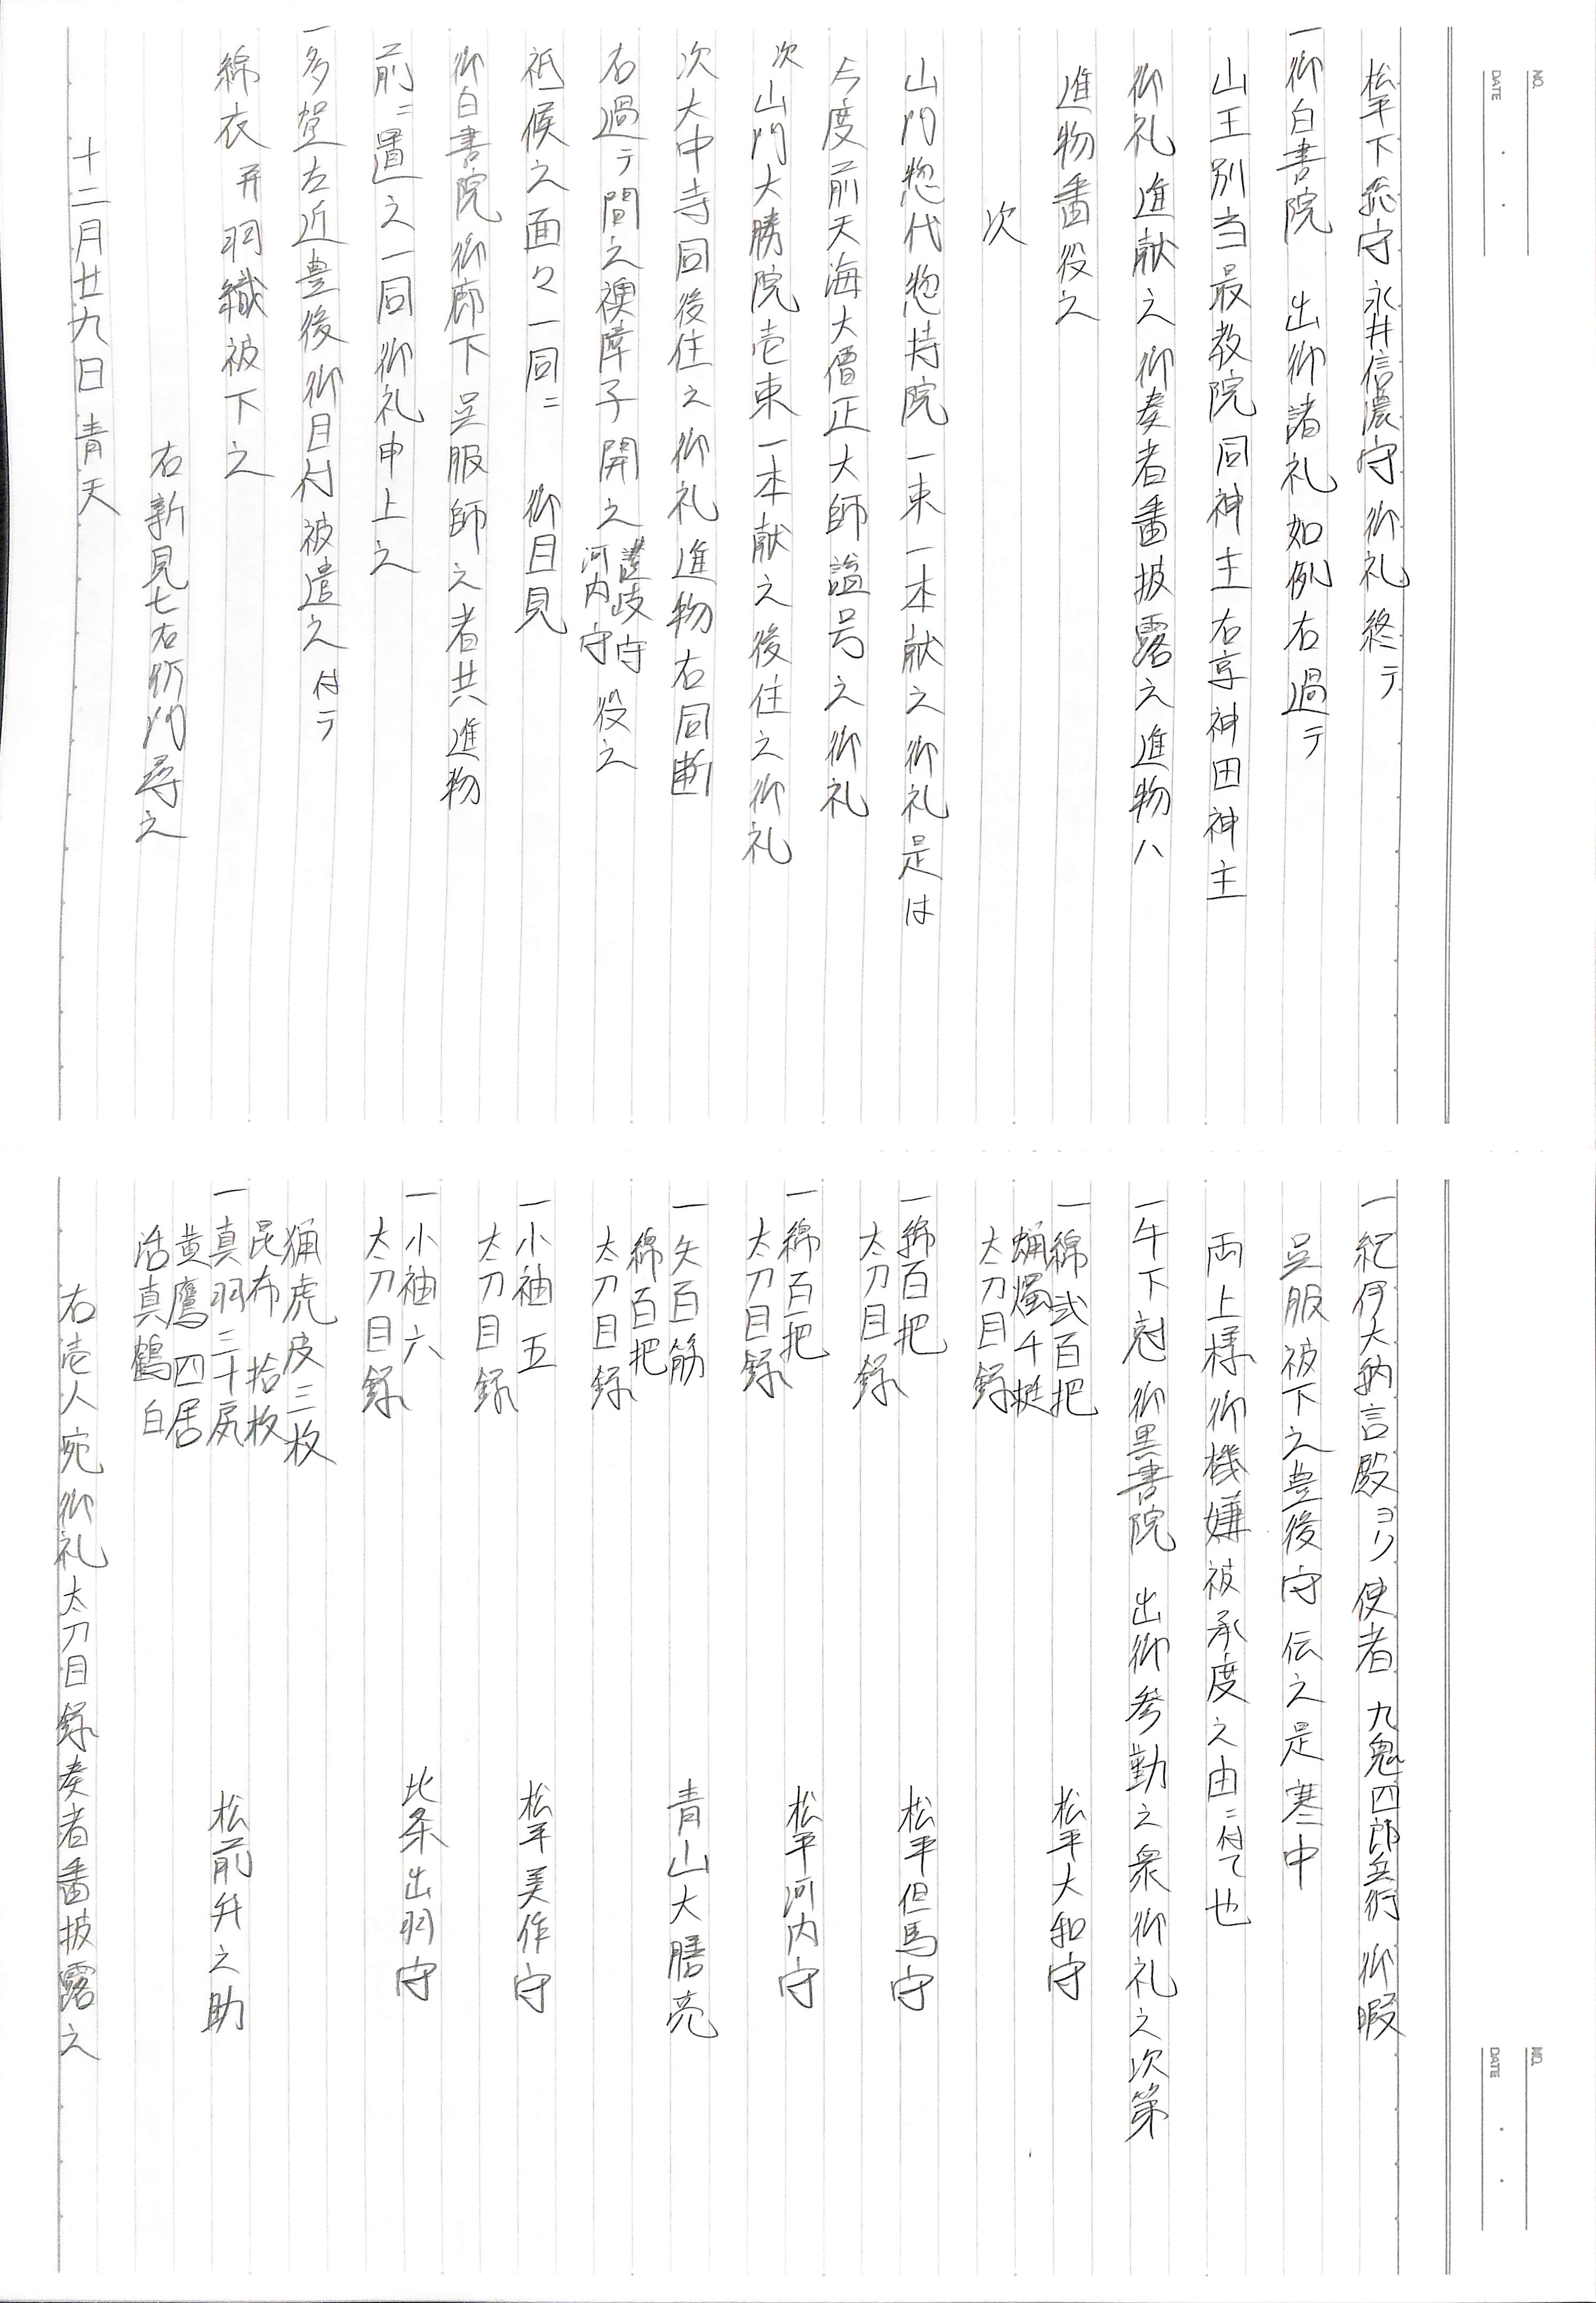 NO.
DATE
松平下総守永井信濃守御礼終テ
一御白書院 出御諸礼如例右過テ
山王別当最教院同神主右京神田神主
御礼進献之御奏者番披露之進物ハ
進物番役之
次
山門惣代惣持院一束一本献之御礼是は
今度前天海大僧正大師謚号之御礼
次山門大勝院壱束一本献之後住之御礼
次大中寺同後住之御礼進物右同断
右過テ間之襖障子開之讃岐守河内守役之
祗候之面々一同ニ 御目見
御白書院御廊下呉服師之者共進物
前ニ置之一同御礼申上之
一多賀左近豊後御目付被遣之付テ
綿衣并羽織被下之
右新見七右衛門尋之
十二月廿九日 青天
NO.
DATE
一紀伊大納言殿ヨリ使者九鬼四郎兵衛御暇
呉服被下之豊後守伝之是寒中
両上様御機嫌被承度之由ニ付て也
一午下尅御黒書院 出御参勤之衆御礼之次第
一綿弐百把 松平大和守
蝋燭千挺
太刀目録
一綿百把 松平但馬守
太刀目録
一綿百把 松平河内守
太刀目録
一矢百筋 青山大膳亮
綿百把
太刀目録
一小袖五 松平美作守
太刀目録
一小袖六 北条出羽守
太刀目録
猟虎皮三枚
昆布拾枚
一真羽三十尻 松前弁之助
黄鷹四居
活真鶴白
右壱人宛御礼太刀目録奏者番披露之